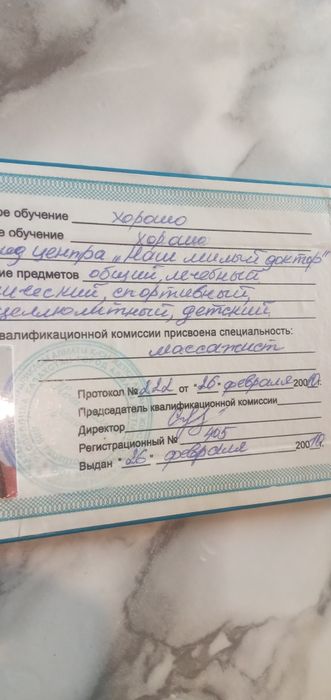 ое обучение хорошо
е обучение хорошо
центра „Наш милый доктор"
ие предметов общий, лечебный
ический, спортивный,
целлюлитный, детский,
валификационной комиссии присвоена специальность:
массажист
Протокол № 222 от "26" февраля 200
Председатель квалификационной комиссии
Директор
Регистрационный № 405
Выдан "26" февраля 200